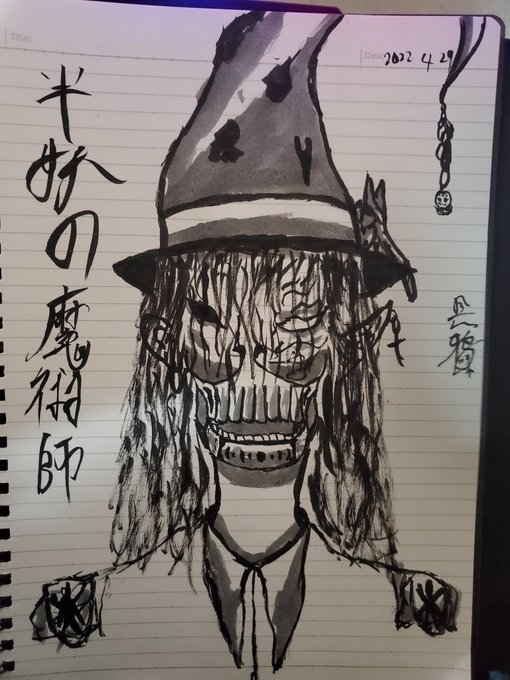 Title:
Date: 2022 4 29
半妖の魔術師